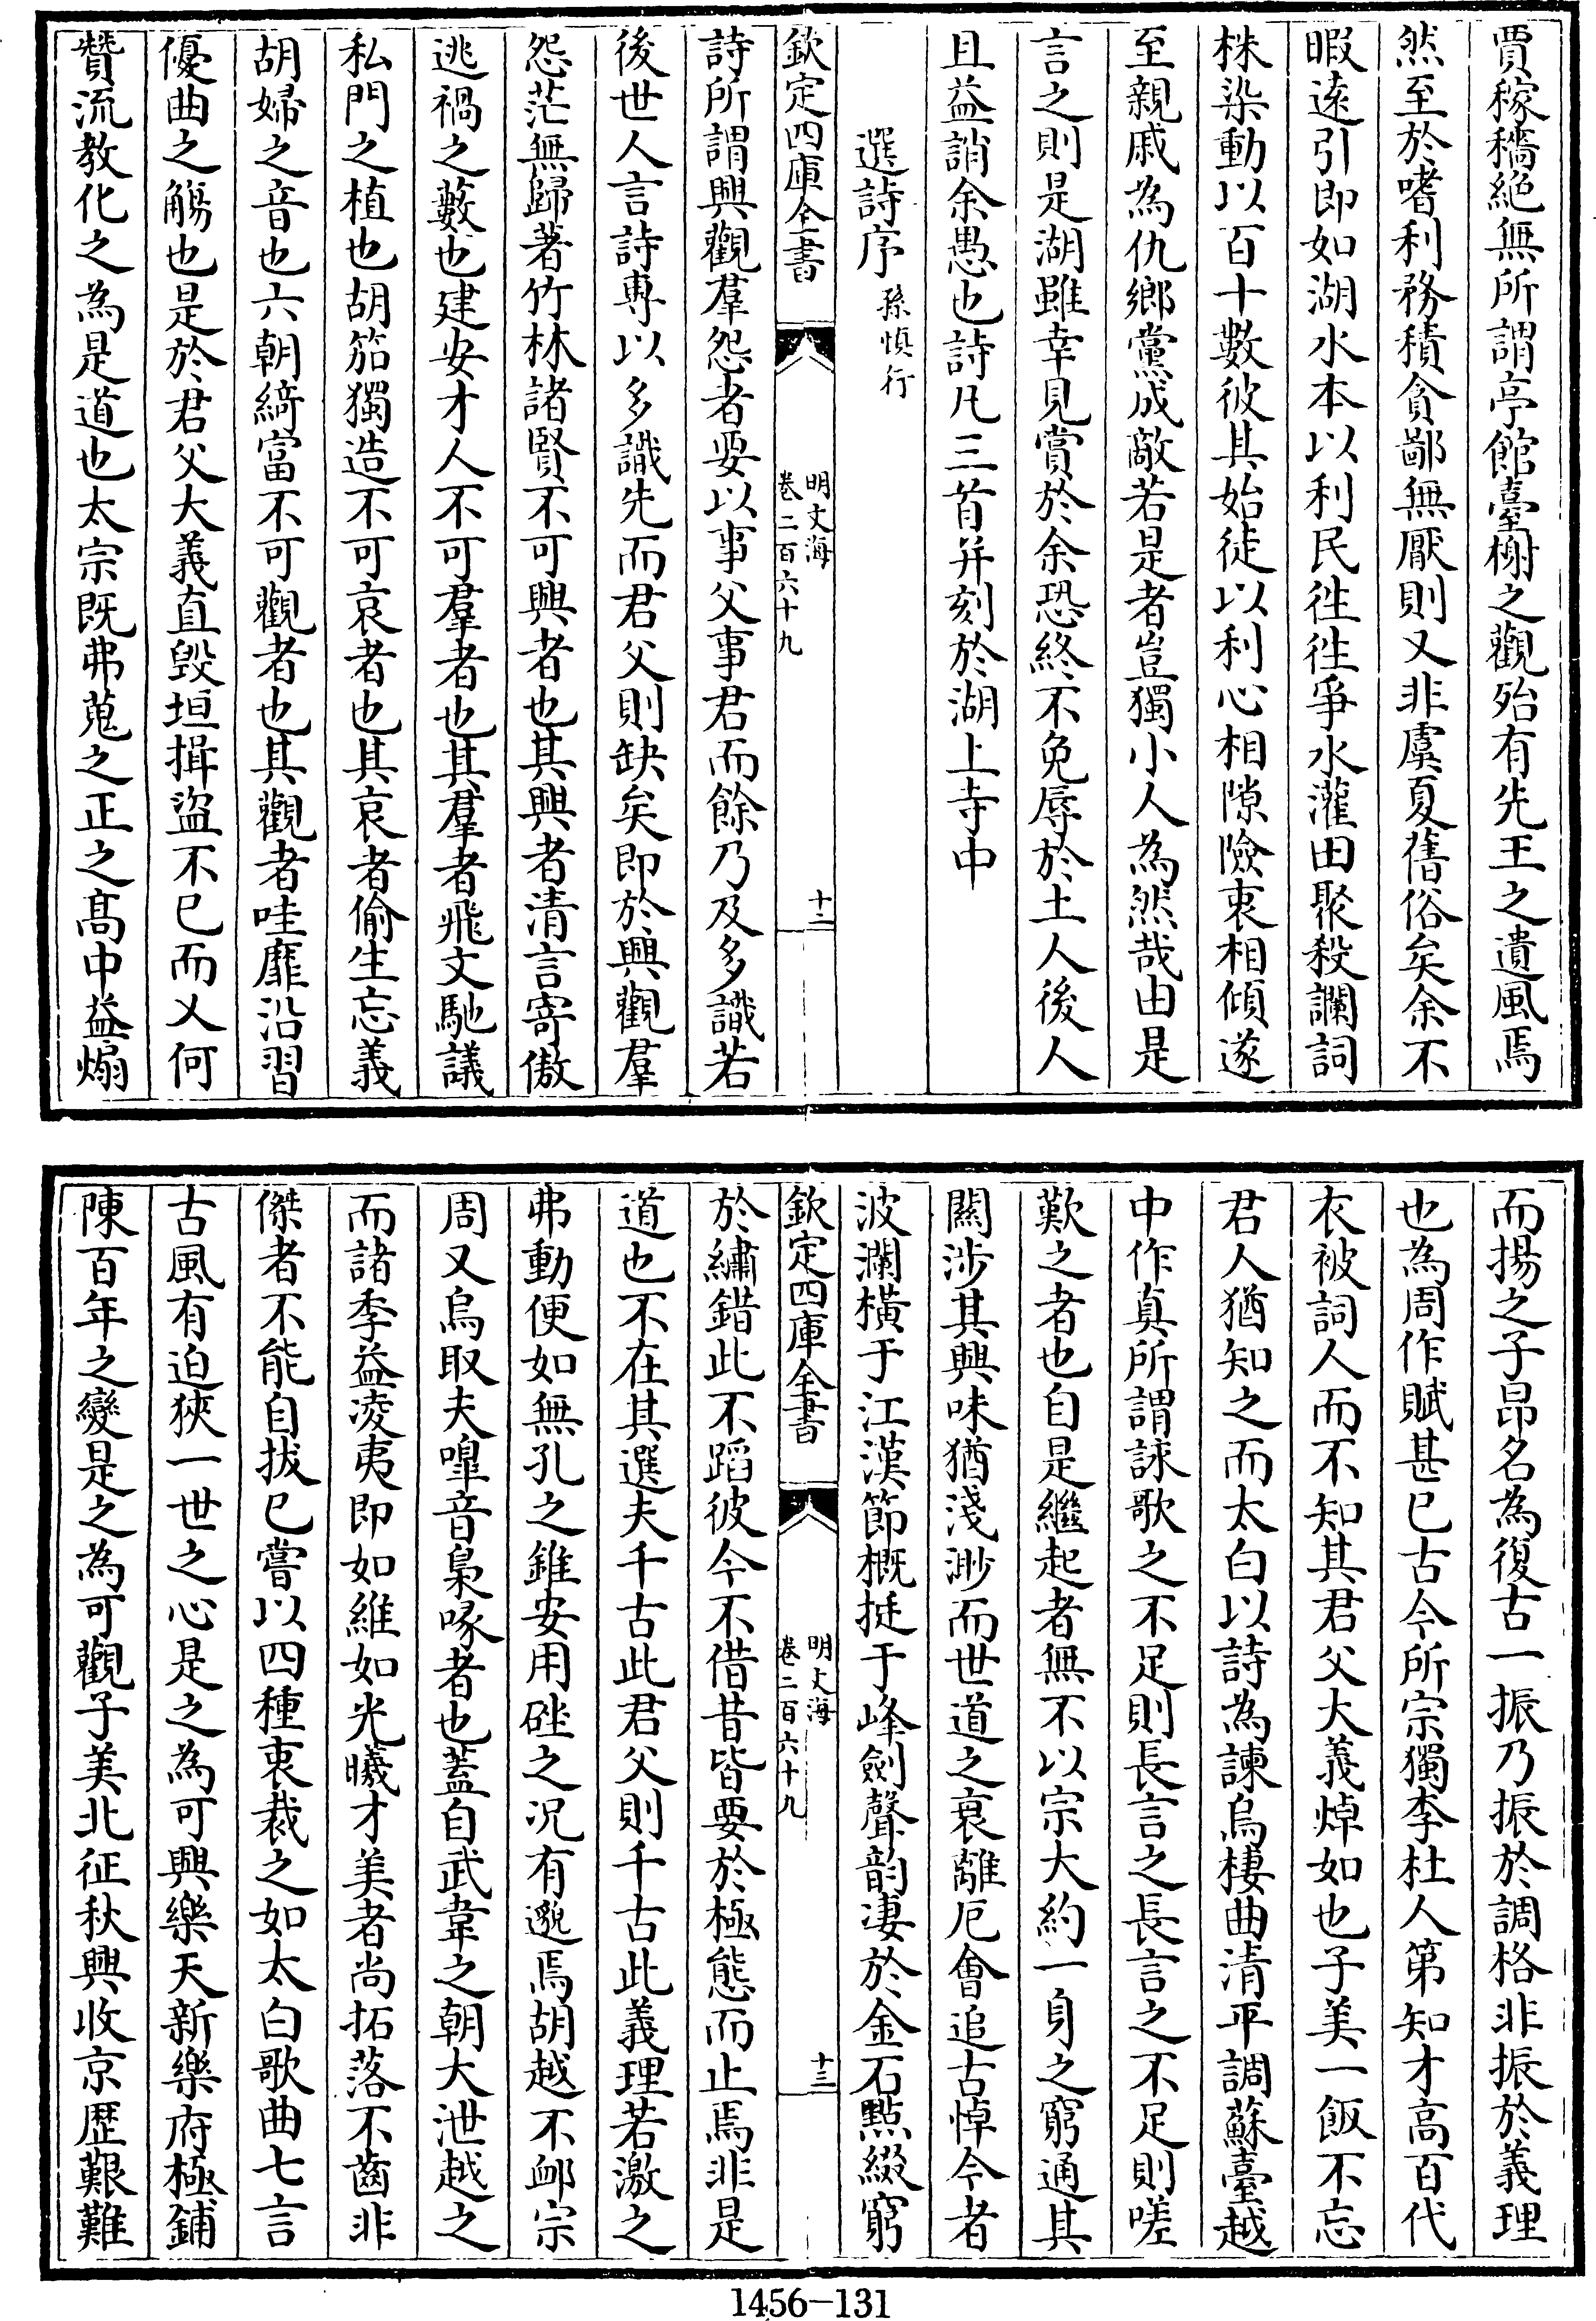 賈稼穡絕無所謂亭館臺榭之觀殆有先王之遺風焉
然至於嗜利務積貪鄙無厭則又非虞夏舊俗矣余不
暇遠引即如湖水本以利民徃徃爭水灌田聚殺讕詞
株染動以百十數彼其始徒以利心相隙險衷相傾遂
至親戚為仇鄉黨成敵若是者豈獨小人為然哉由是
言之則是湖雖幸見賞於余恐終不免辱於土人後人
且益誚余愚也詩凡三首并刻於湖上寺中
選詩序 孫慎行
欽定四庫全書
明文海
卷二百六十九
十二
詩所謂興觀羣怨者要以事父事君而餘乃及多識若
後世人言詩專以多識先而君父則缺矣即於興觀羣
怨茫無歸著竹林諸賢不可興者也其興者清言寄傲
逃禍之藪也建安才人不可羣者也其羣者飛文馳議
私門之植也胡笳獨造不可哀者也其哀者偷生忘義
胡婦之音也六朝綺富不可觀者也其觀者哇靡沿習
優曲之觴也是於君父大義直毀垣揖盜不已而乂何
贊流教化之為是道也太宗既弗蒐之正之髙中益煽
而揚之子昂名為復古一振乃振於調格非振於義理
也為周作賦甚已古今所宗獨李杜人第知才高百代
衣被詞人而不知其君父大義焯如也子美一飯不忘
君人猶知之而太白以詩為諫烏棲曲清平調蘇臺越
中作真所謂詠歌之不足則長言之長言之不足則嗟
歎之者也自是繼起者無不以宗大約一身之窮通其
關涉其興味猶淺渺而世道之衰離厄會追古悼今者
波瀾橫于江漢節概挺于峰劍聲韵淒於金石點綴窮
欽定四庫全書
明文海
卷二百六十九
十三
於繡錯此不蹈彼今不借昔皆要於極態而止焉非是
道也不在其選夫千古此君父則千古此義理若激之
弗動便如無孔之錐安用硾之况有邈焉胡越不衈宗
周又烏取夫嘷音梟喙者也蓋自武韋之朝大泄越之
而諸季益凌夷即如維如光曦才美者尚拓落不齒非
傑者不能自拔已嘗以四種衷裁之如太白歌曲七言
古風有迫狹一世之心是之為可興樂天新樂府極鋪
陳百年之變是之為可觀子美北征秋興收京歷艱難
1456—131